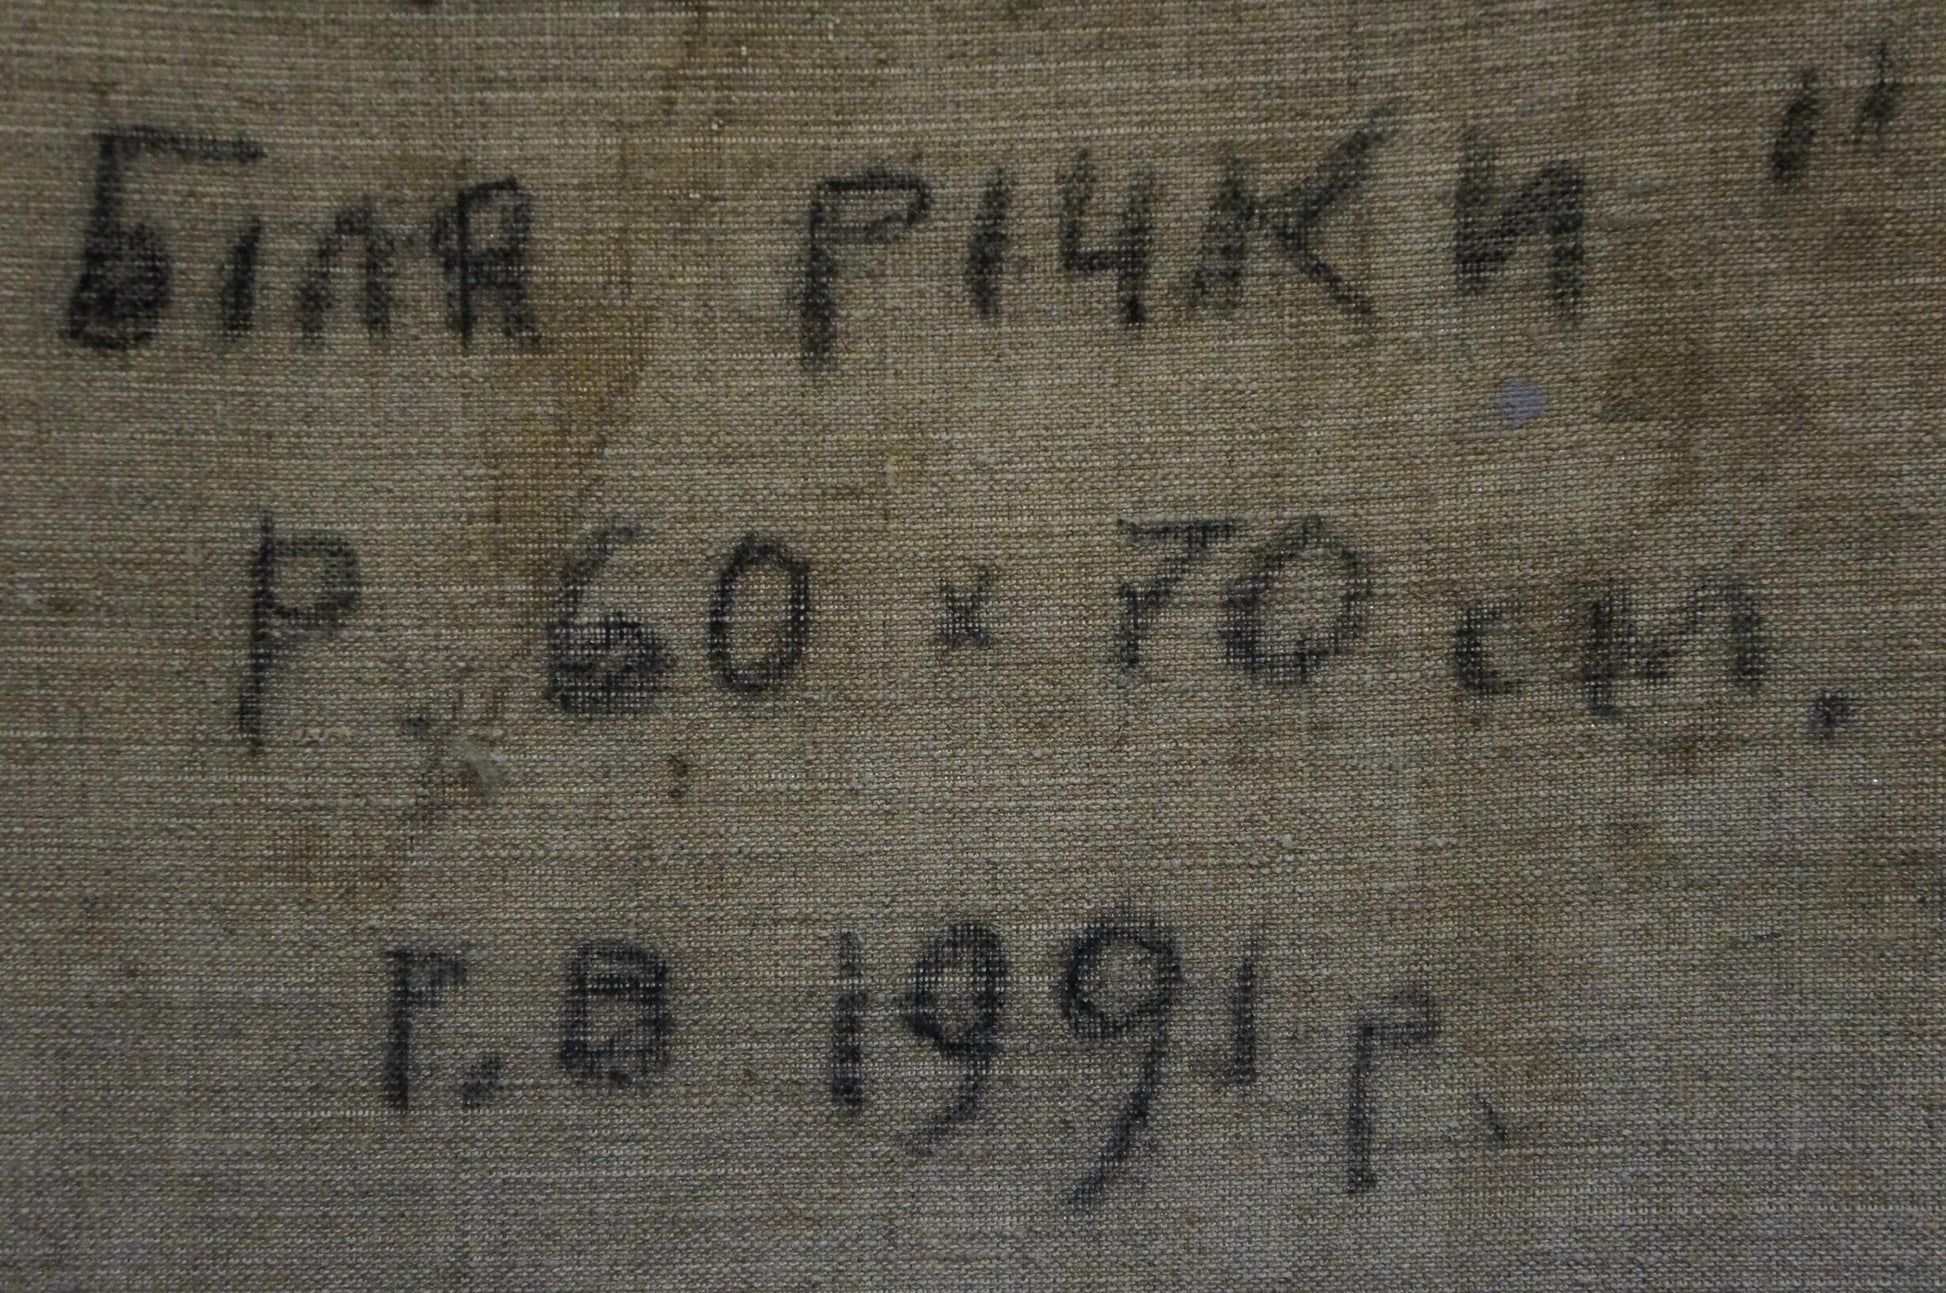 Біля річки"
Р. 60 x 70 см.
Г.В 1991 р.